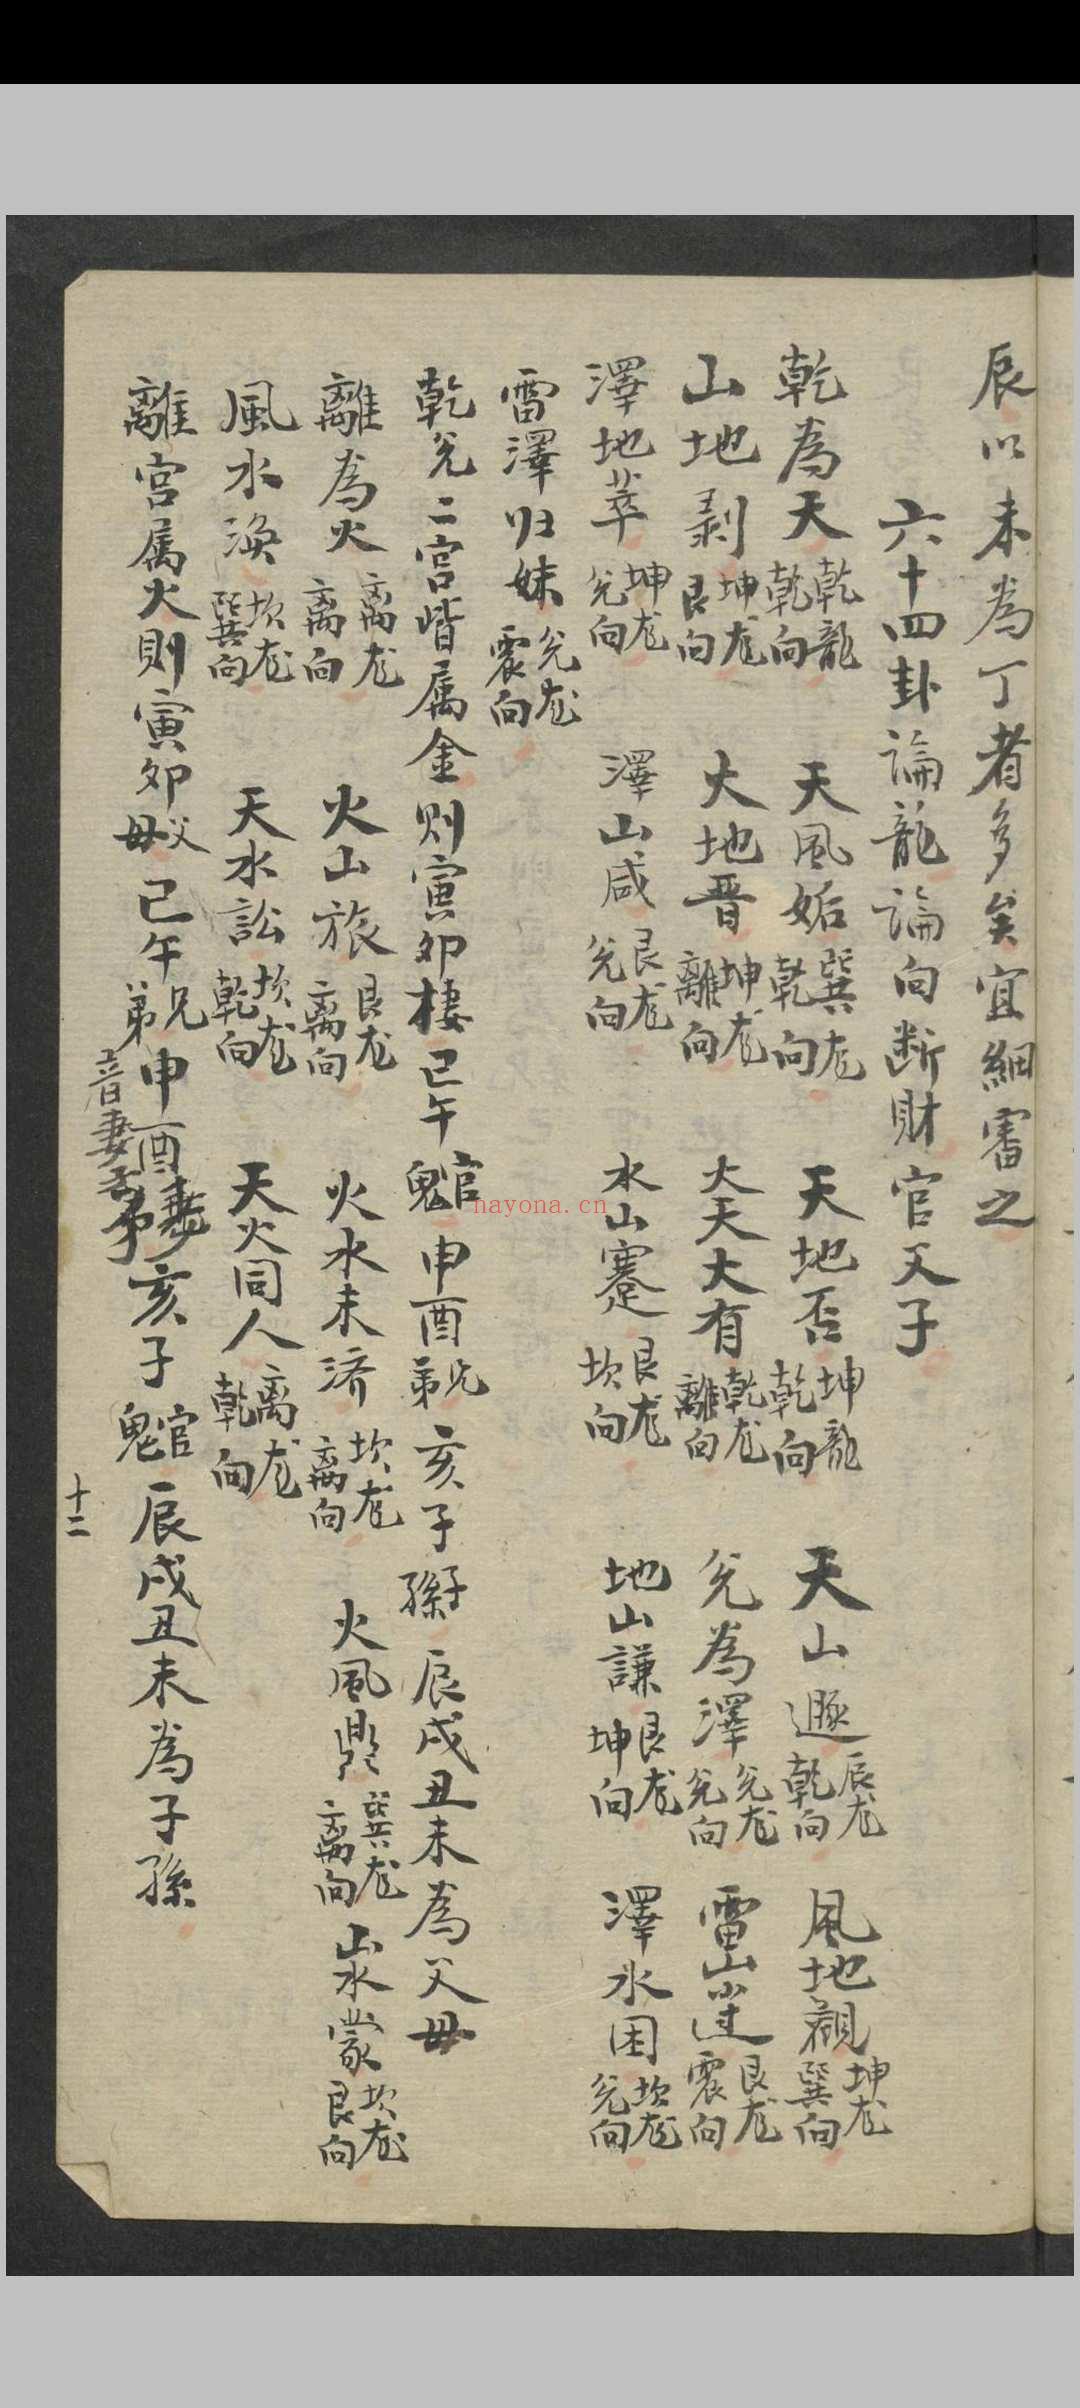 辰以未為丁者多矣宜細審之
六十四卦論龍論向断財官父子
乾為天 乾龍乾向 天風姤 巽尨乾向 天地否 坤龍乾向 天山遯 辰尨乾向 風地觀 坤尨巽向
山地剥 坤尨艮向 火地晋 坤尨離向 火天大有 乾尨離向 兑為澤 兑尨兑向 雷山 艮尨震向
澤地萃 坤尨兑向 澤山咸 艮尨兑向 水山蹇 艮尨坎向 地山謙 艮尨坤向 澤水困 坎尨兑向
雷澤归妹 兑尨震向
乾兑二宫皆属金则寅卯棲巳午官鬼申酉兄弟亥子子孫辰戌丑未為父母
離為火 离尨离向 火山旅 艮尨离向 火水未済 坎尨离向 火風鼎 巽尨离向 山水蒙 坎尨艮向
風水渙 坎尨巽向 天水訟 坎尨乾向 天火同人 离尨乾向
離宫属火則寅卯父母巳午兄弟申酉妻亥子官鬼辰戌丑未為子孫
音妻
十二
nayona.cn